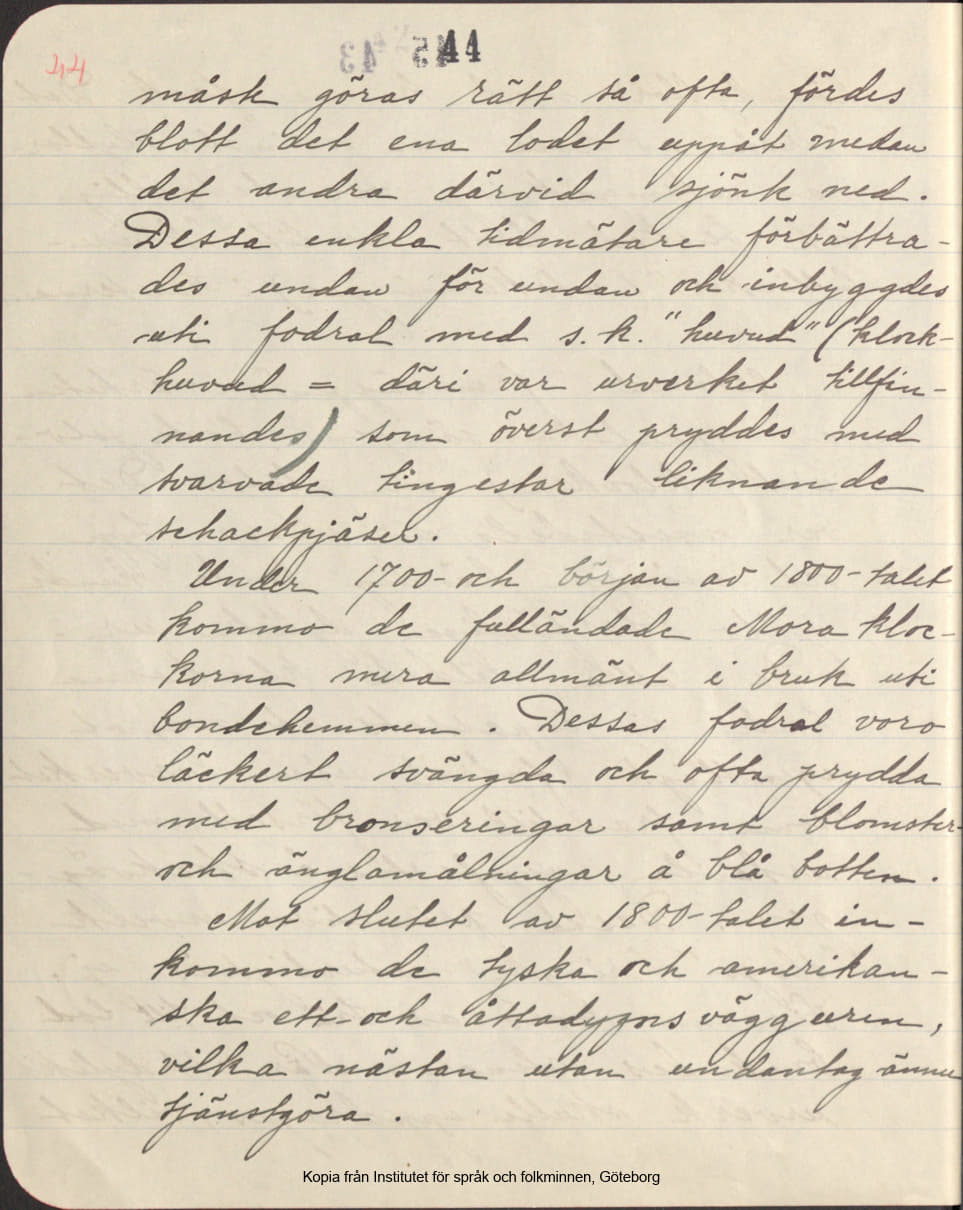 44
43 45 44
måste göras rätt så ofta, fördes
blott det ena lodet uppåt medan
det andra därvid sjönk ned.
Dessa enkla tidmätare förbättra-
des undan för undan och inbyggdes
uti fodral med s.k. "huvud" (klock-
huvud = däri var urverket tillfin-
nandes) som överst pryddes med
svarvade tingestar liknande
schackpjäser.
Under 1700- och början av 1800-talet
kommo de fulländade Mora kloc-
korna mera allmänt i bruk uti
bondehemmen. Dessas fodral voro
läckert svängda och ofta prydda
med bronseringar samt blomster-
och änglamålningar å blå botten.
Mot slutet av 1800-talet in-
kommo de tyska och amerikan-
ska ett- och åttadygns vägguren,
vilka nästan utan undantag ännu
tjänstgöra.
Kopia från Institutet för språk och folkminnen, Göteborg